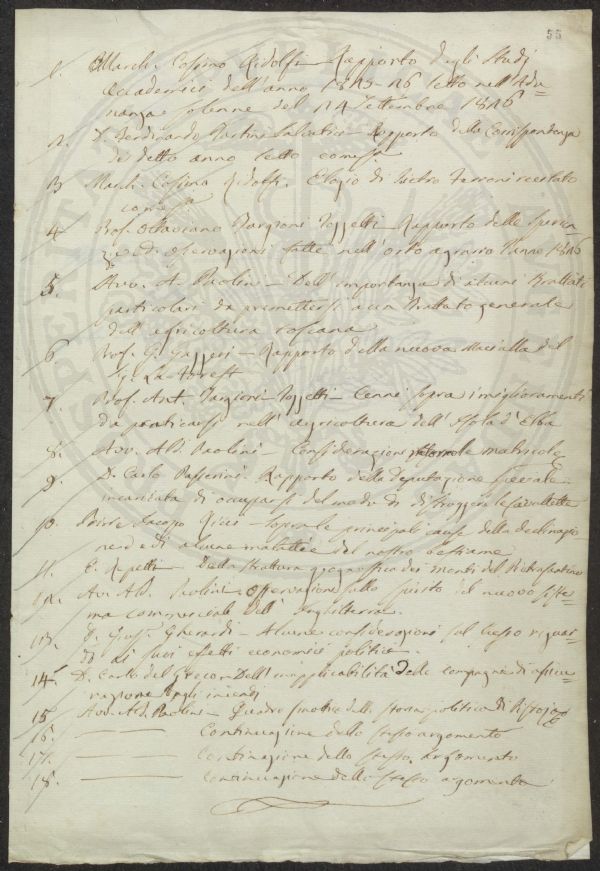 55
1. March. Cosimo Ridolfi — Rapporto degli Studj
accademici dell'anno 1825-26 letto nell'Adu-
nanza solenne del 24 Settembre 1826
2. D. Ferdinando Tartini Salvatici — Rapporto della Corrispondenza
di detto anno letto come sa
3 March. Cosimo Ridolfi. Elogio di Pietro Ferroni recitato
come sa
4. Prof. Ottaviano Targioni Tozzetti — Rapporto delle sperien-
ze ed osservazioni fatte nell'orto agrario l'anno 1826
5. Avv. A. Paolini — Dell'importanza di alcuni Trattati
particolari da premettersi a un Trattato generale
dell'agricoltura toscana
6 Prof. G. Gazzeri — Rapporto della nuova
7. Prof. Ant. Targioni Tozzetti — Cenni sopra i miglioramenti
da praticarsi nell'agricoltura dell'Isola d'Elba
8. Avv. Ald. Paolini — Considerazioni matricole
9. D. Carlo Passerini. Rapporto della Deputazione speciale
incaricata di occuparsi del modo di distruggere le cavallette
10. Jacopo Ricci — sopra le principali cause della declinazio-
ne e di alcune malattie del nostro bestiame
11. E. Repetti — Della struttura geognostica dei monti del Pietrasantino
12. Av. Ald. Paolini — Osservazioni sullo spirito del nuovo siste-
ma commerciale dell'Inghilterra.
13. D. Gius. Gherardi — Alcune considerazioni sul lusso riguar-
do ai suoi effetti economici politici.
14. D. Carlo del Greco — Dell'inapplicabilità delle compagnie di assicu-
razione dagli incendj
15 Avv. Ald. Paolini — Quadro della storia politica di
16. ——— Continuazione dello stesso argomento
17. ——— Continuazione dello stesso argomento
18. ——— Continuazione dello stesso argomento